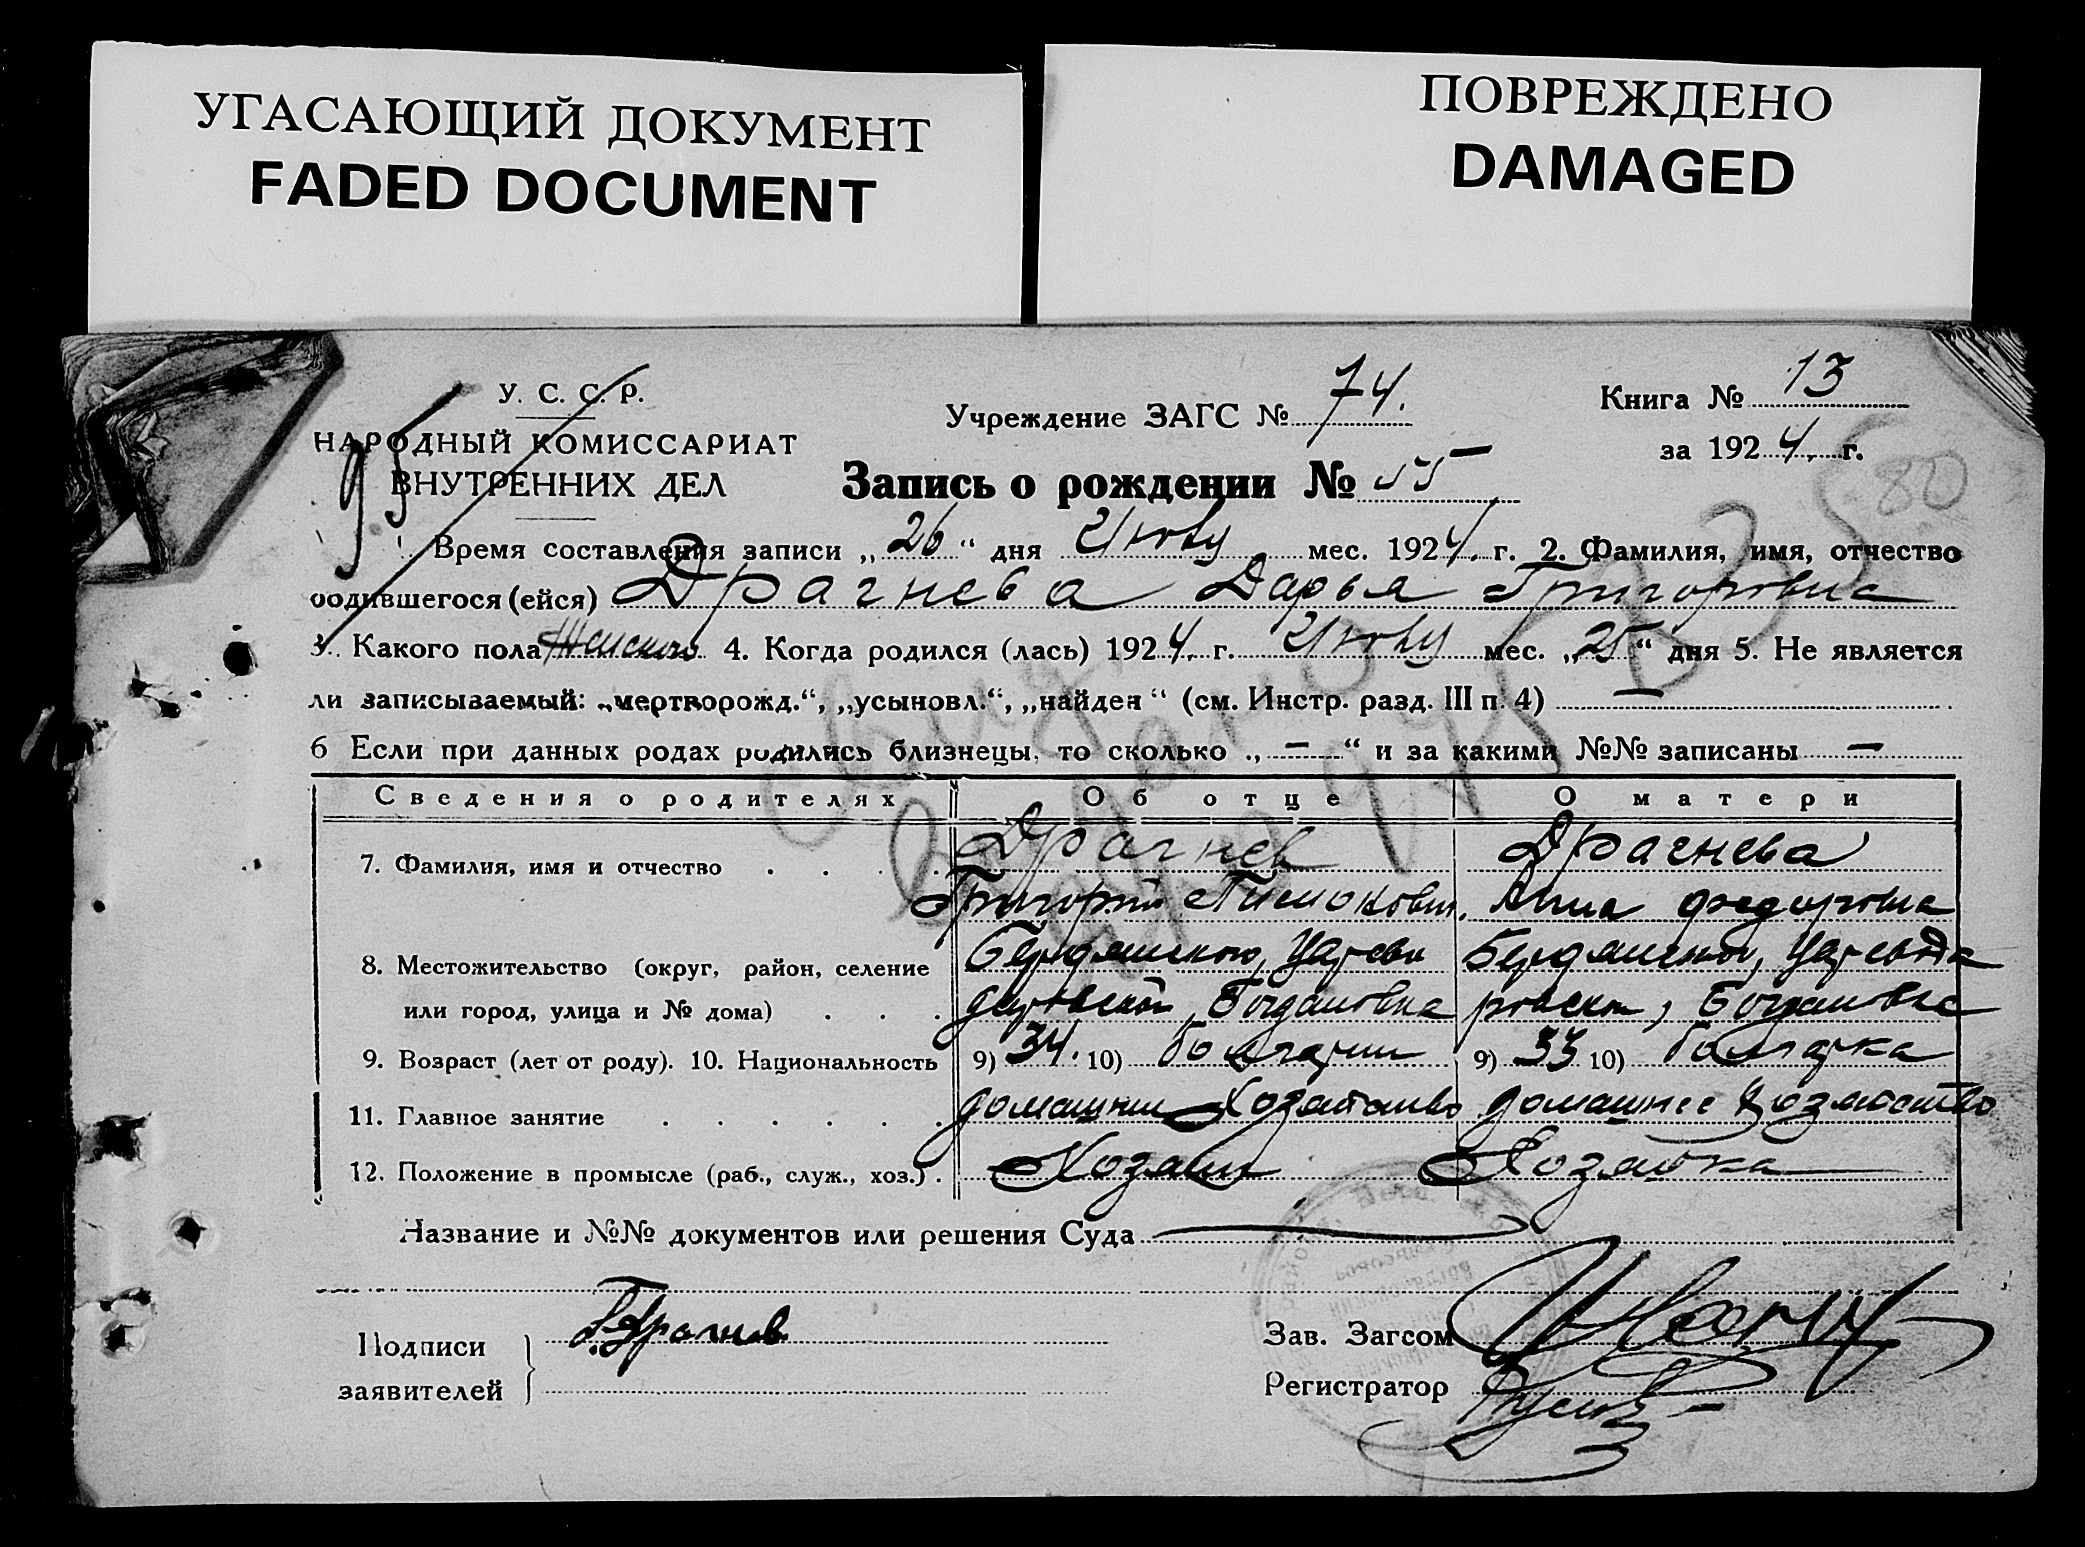 УГАСАЮЩИЙ ДОКУМЕНТ
FADED DOCUMENT
ПОВРЕЖДЕНО
DAMAGED
У. С. С. Р.
НАРОДНЫЙ КОМИССАРИАТ
ВНУТРЕННИХ ДЕЛ
95
Учреждение ЗАГС № 74.
Книга № 13
за 1924 г.
80
Запись о рождении № 55
Время составления записи „26“ дня Июня мес. 1924 г. 2. Фамилия, имя, отчество
родившегося (ейся) Драгнева Дарья Григоровна
3. Какого пола Женского 4. Когда родился (лась) 1924 г. Июня мес. „25“ дня 5. Не является
ли записываемый: „мертворожд.“, „усыновл.“, „найден“ (см. Инстр. разд. III п. 4) —
6 Если при данных родах родились близнецы, то сколько „—“ и за какими №№ записаны —
Сведения о родителях Об отце О матери
7. Фамилия, имя и отчество Драгнев Драгнева
Григорий Анна Федоровна
8. Местожительство (округ, район, селение Бердянского, Царево Бердянского, Царевода
или город, улица и № дома) даровской, Богдановка ровской, Богдановка
9. Возраст (лет от роду). 10. Национальность 9) 34. 10) болгарин 9) 33 10) болгарка
11. Главное занятие домашнее Хозяйство домашнее Хозяйство
12. Положение в промысле (раб., служ., хоз.). Хозяин Хозяйка
Название и №№ документов или решения Суда —
Подписи
заявителей
Г. Драгнев
Зав. Загсом
Регистратор